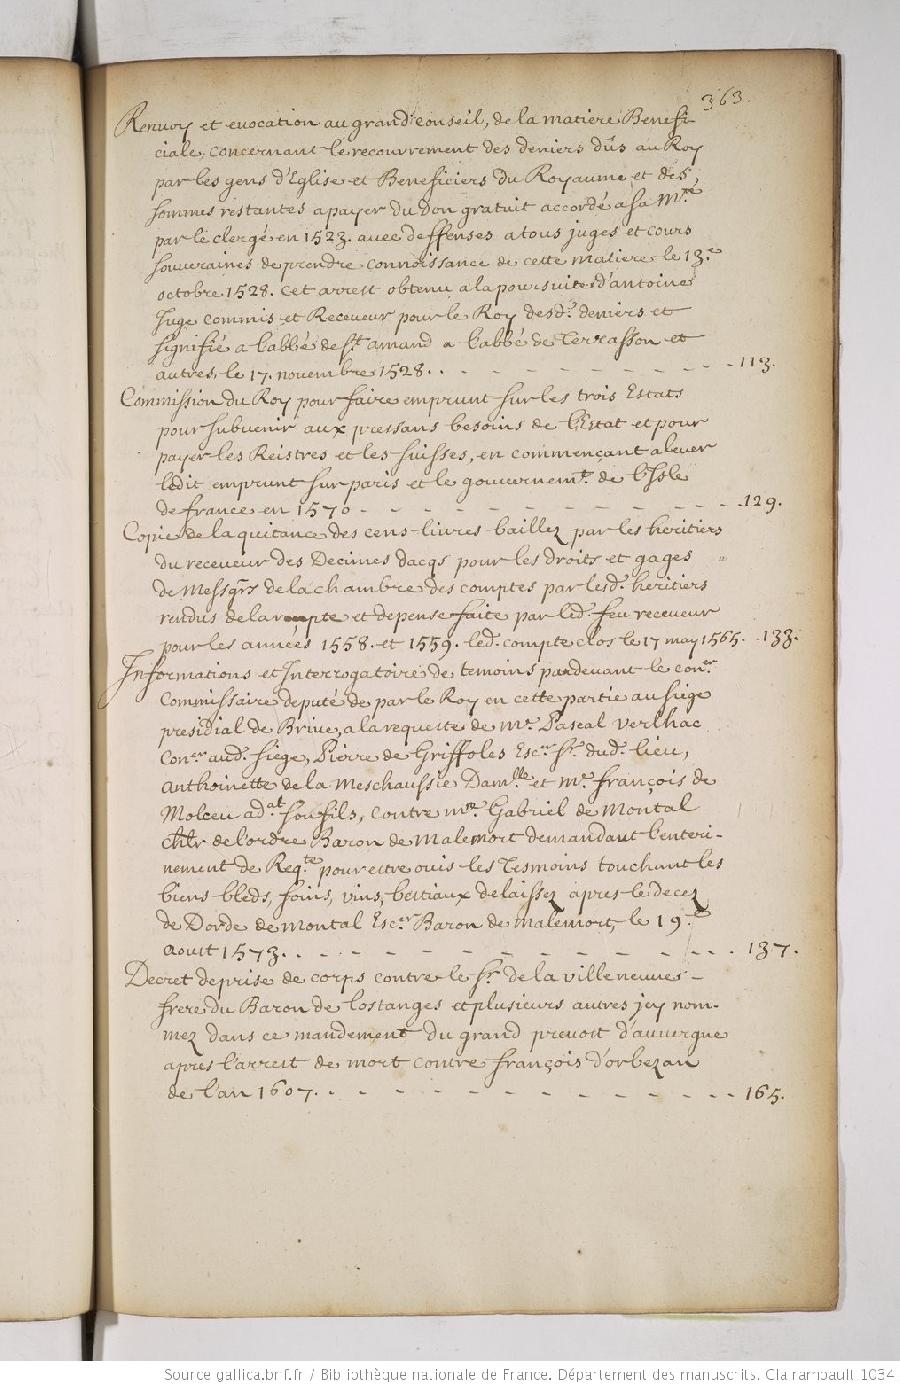 363.
Renvoy et evocation au grand conseil, de la matiere Benefi-
ciale, concernant le recouvrement des deniers dûs au Roy
par les gens d'Eglise et Beneficiers du Royaume et des
sommes restantes a payer du don gratuit accordé a sa M.té
par le clergé en 1523. avec deffenses a tous juges et cours
souveraines de prendre connoissance de cette matiere le 13.e
octobre 1528. cet arrest obtenu a la poursuite d'antoine
Juge commis et Receveur pour le Roy desd. deniers et
signifié a l'abbé de S.t amand a l'abbé de Terrasson et
autres, le 17. novembre 1528. . - - - - - - - - - 113.
Commission du Roy pour faire emprunt sur les trois Estats
pour subvenir aux pressans besoins de l'Estat et pour
payer les Reistres et les suisses, en commençant a lever
ledit emprunt sur paris et le gouvernem.t de l'Isle
de france en 1570 - - - - - - - - - - - - 129.
Copie de la quitance des cens livres baillez par les heritiers
du receveur des Decimes dacqs pour les droits et gages
de Mess.grs de la chambre des comptes par lesd. heritiers
rendus de la recepte et depense faite par led. feu receveur
pour les années 1558. et 1559. led. compte clos le 17 may 1565. - 133.
Informations et Interrogatoire de temoins pardevant le con.er
Commissaire deputé de par le Roy en cette partie au siege
presidial de Brive, a la requeste de m.e Pascal verlhac
Con.er aud. siege, Pierre de Griffoles Esc.er s.r dud. lieu,
anthoinette de la Meschaussie Dam.lle et m.e françois de
Molceu ad.at son fils, contre m.re Gabriel de Montal
ch.lr de l'ordre Baron de Malemort demandant l'enteri-
nement de Req.te pour estre ouis les Tesmoins touchant les
biens bleds, foins, vins, bestiaux delaissez apres le decez
de Dorde de Montal Esc.er Baron de malemort, le 19.e
Aoust 1573. . - - - - - - - - - - - - - 137.
Decret de prise de corps contre le s.r de la villeneuve -
frere du Baron de lostanges et plusieurs autres jcy nom-
mez dans ce mandement du grand prevost d'auvergne
apres l'arrest de mort contre françois d'orbezan
de l'an 1607. - - - - - - - - - - - - - 165.
Source gallica.bnf.fr / Bibliothèque nationale de France. Département des manuscrits. Clairambault 1034